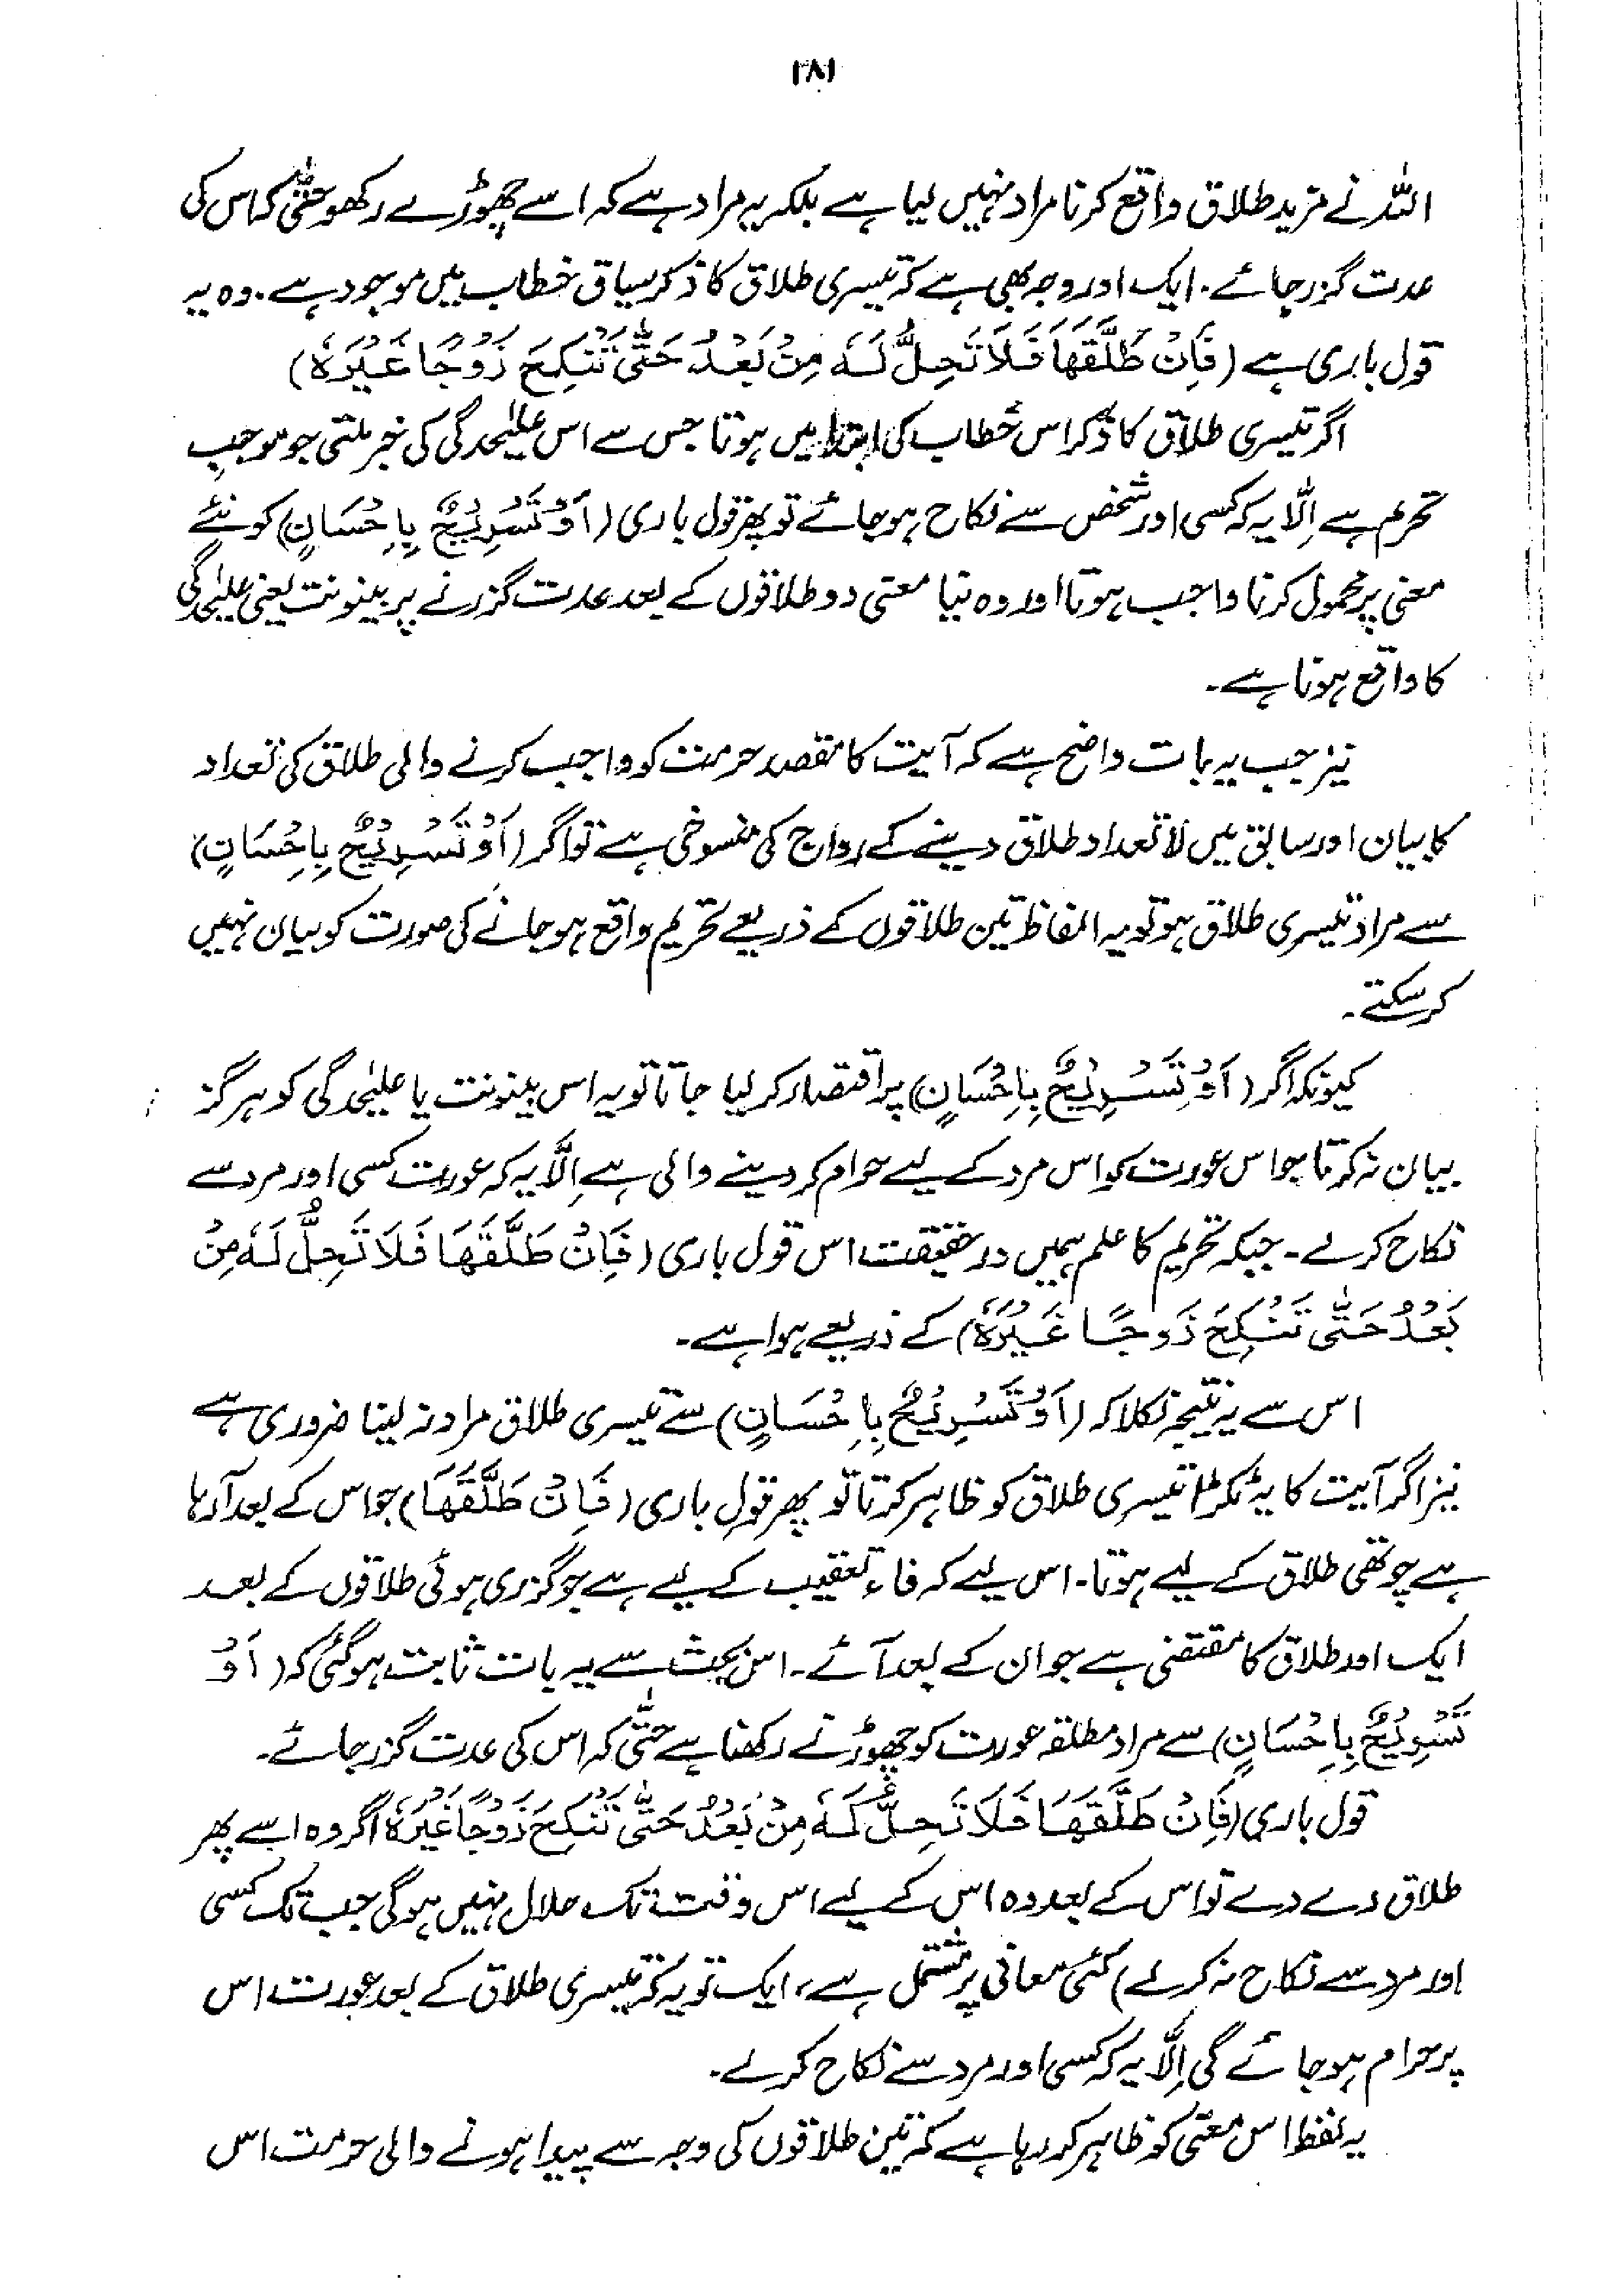 ۱۸۱
اللہ نے مزید طلاق واقع کرنا مراد نہیں لیا ہے بلکہ یہ مراد ہے کہ اسے چھوڑے رکھو حتّٰی کہ اس کی
عدت گزر جائے۔ ایک اور وجہ بھی ہے کہ تیسری طلاق کا ذکر سیاق خطاب میں موجود ہے۔ وہ یہ
قول باری ہے (فَاِنْ طَلَّقَهَا فَلَا تَحِلُّ لَهٗ مِنْ بَعْدُ حَتّٰى تَنْكِحَ زَوْجًا غَيْرَهٗ)
اگر تیسری طلاق کا ذکر اس خطاب کی ابتدا میں ہوتا جس سے اس علیٰحدگی کی خبر ملتی جو موجب
تحریم ہے اِلّا یہ کہ کسی اور شخص سے نکاح ہو جائے تو پھر قول باری (اَوْ تَسْرِيْحٌ بِاِحْسَانٍ) کو نئے
معنی پر محمول کرنا واجب ہوتا اور وہ نیا معنی دو طلاقوں کے بعد عدت گزرنے پر بینونت یعنی علیٰحدگی
کا واقع ہونا ہے۔
نیز جب یہ بات واضح ہے کہ آیت کا مقصد حرمت کو واجب کرنے والی طلاق کی تعداد
کا بیان اور سابق میں لا تعداد طلاق دینے کے رواج کی منسوخی ہے تو اگر (اَوْ تَسْرِيْحٌ بِاِحْسَانٍ)
سے مراد تیسری طلاق ہو تو یہ الفاظ تین طلاقوں کے ذریعے تحریم واقع ہو جانے کی صورت کو بیان نہیں
کر سکتے۔
کیونکہ اگر (اَوْ تَسْرِيْحٌ بِاِحْسَانٍ) پر اقتصار کر لیا جاتا تو یہ اس بینونت یا علیٰحدگی کو ہرگز
بیان نہ کرتا جو اس عورت کو اس مرد کے لیے حرام کر دینے والی ہے اِلَّا یہ کہ عورت کسی اور مرد سے
نکاح کرلے۔ جبکہ تحریم کا علم ہمیں درحقیقت اس قول باری (فَاِنْ طَلَّقَهَا فَلَا تَحِلُّ لَهٗ مِنْ
بَعْدُ حَتّٰى تَنْكِحَ زَوْجًا غَيْرَهٗ) کے ذریعے ہوا ہے۔
اس سے یہ نتیجہ نکلا کہ (اَوْ تَسْرِيْحٌ بِاِحْسَانٍ) سے تیسری طلاق مراد نہ لینا ضروری ہے
نیز اگر آیت کا یہ ٹکڑا تیسری طلاق کو ظاہر کرتا تو پھر قولِ باری (فَاِنْ طَلَّقَهَا) جو اس کے بعد آرہا
ہے چوتھی طلاق کے لیے ہوتا۔ اس لیے کہ فاء تعقیب کے لیے ہے جو گزری ہوئی طلاقوں کے بعد
ایک اور طلاق کا مقتضی ہے جو ان کے بعد آئے۔ اس بحث سے یہ بات ثابت ہو گئی کہ (اَوْ
تَسْرِيْحٌ بِاِحْسَانٍ) سے مراد مطلقہ عورت کو چھوڑے رکھنا ہے حتّٰی کہ اس کی عدت گزر جائے۔
قول باری (فَاِنْ طَلَّقَهَا فَلَا تَحِلُّ لَهٗ مِنْ بَعْدُ حَتّٰى تَنْكِحَ زَوْجًا غَيْرَهٗ اگر وہ اسے پھر
طلاق دے دے تو اس کے بعد وہ اس کے لیے اس وقت تک حلال نہیں ہوگی جب تک کسی
اور مرد سے نکاح نہ کرلے) کئی معانی پر مشتمل ہے، ایک تو یہ کہ تیسری طلاق کے بعد عورت اس
پر حرام ہو جائے گی اِلَّا یہ کہ کسی اور مرد سے نکاح کرلے۔
یہ لفظ اس معنی کو ظاہر کر رہا ہے کہ تین طلاقوں کی وجہ سے پیدا ہونے والی حرمت اس